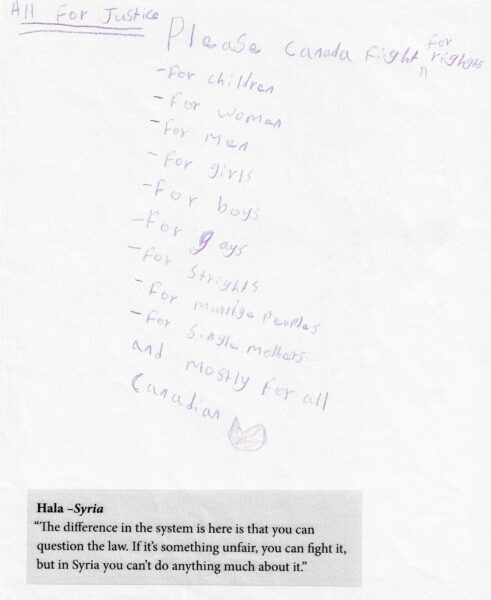 All For Justice
Please Canada fight for righgts
- For children
- For women
- For Men
- For girls
- For boys
- For gays
- For Strights
- For Marrige Peoples
- For single mothers
and mostly for all
Canadian
Hala –Syria
“The difference in the system is here is that you can
question the law. If it’s something unfair, you can fight it,
but in Syria you can’t do anything much about it.”